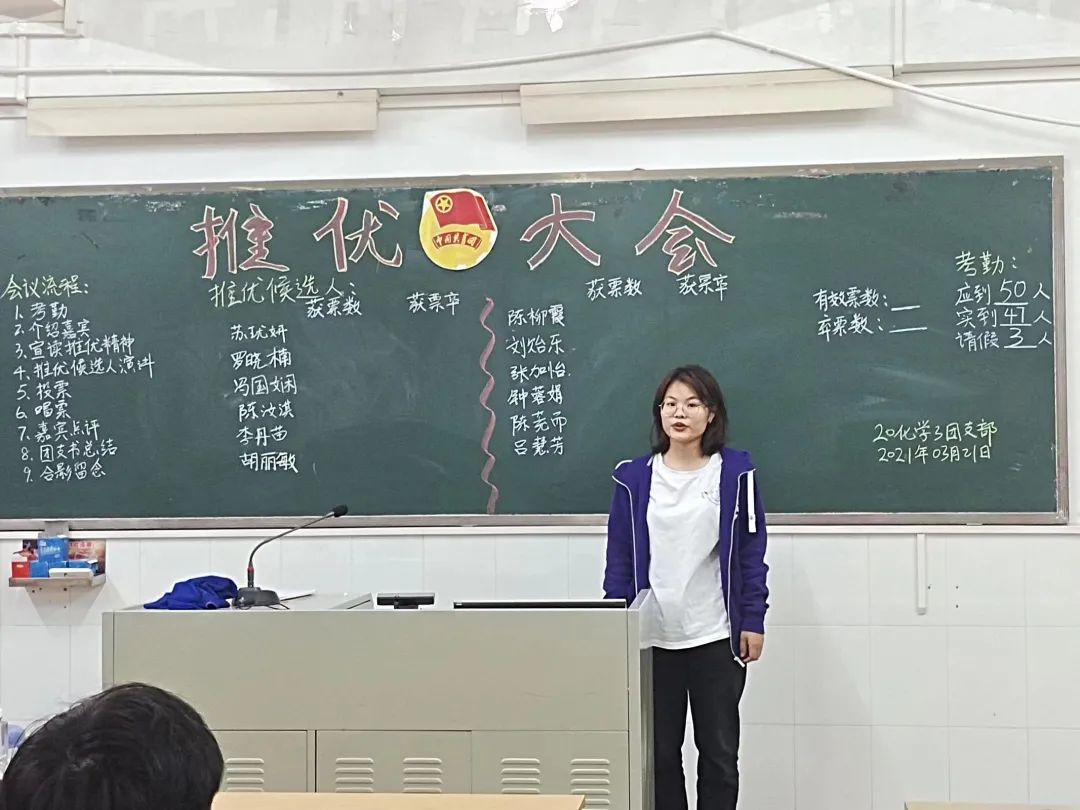 推优大会
中国共青团
会议流程：
1. 考勤
2. 介绍嘉宾
3. 宣读推优精神
4. 推优候选人演讲
5. 投票
6. 唱票
7. 嘉宾点评
8. 团支书总结
9. 合影留念
推优候选人：
获票数 获票率
苏珖妍
罗晓楠
冯国娴
陈汝淇
李丹苗
胡丽敏
获票数 获票率
陈柳霞
刘饴乐
张加怡
钟蓉娟
陈芫而
吕慧芳
有效票数：
率票数：
考勤：
应到 50 人
实到 47 人
请假 3 人
20化学3团支部
2021年03月21日